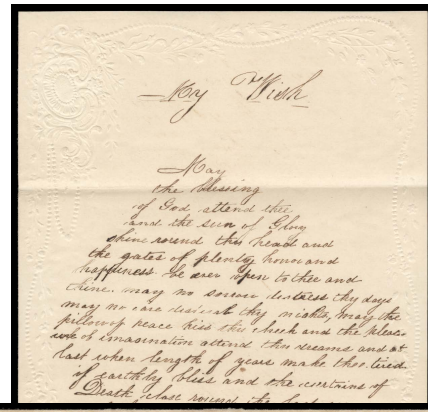 My Wish
May
the blessing
of God attend thee
and the sun of Glory
shine round thy head and
the gates of plenty honor and
happiness be ever open to thee and
thine. may no sorrow distress thy days
may no care disturb thy nights, may the
pillow of peace kiss thy cheek and the pleas
ure of imagination attend thy dreams and at
last when length of years make thee tired
of earthly bliss and the curtains of
Death close round the